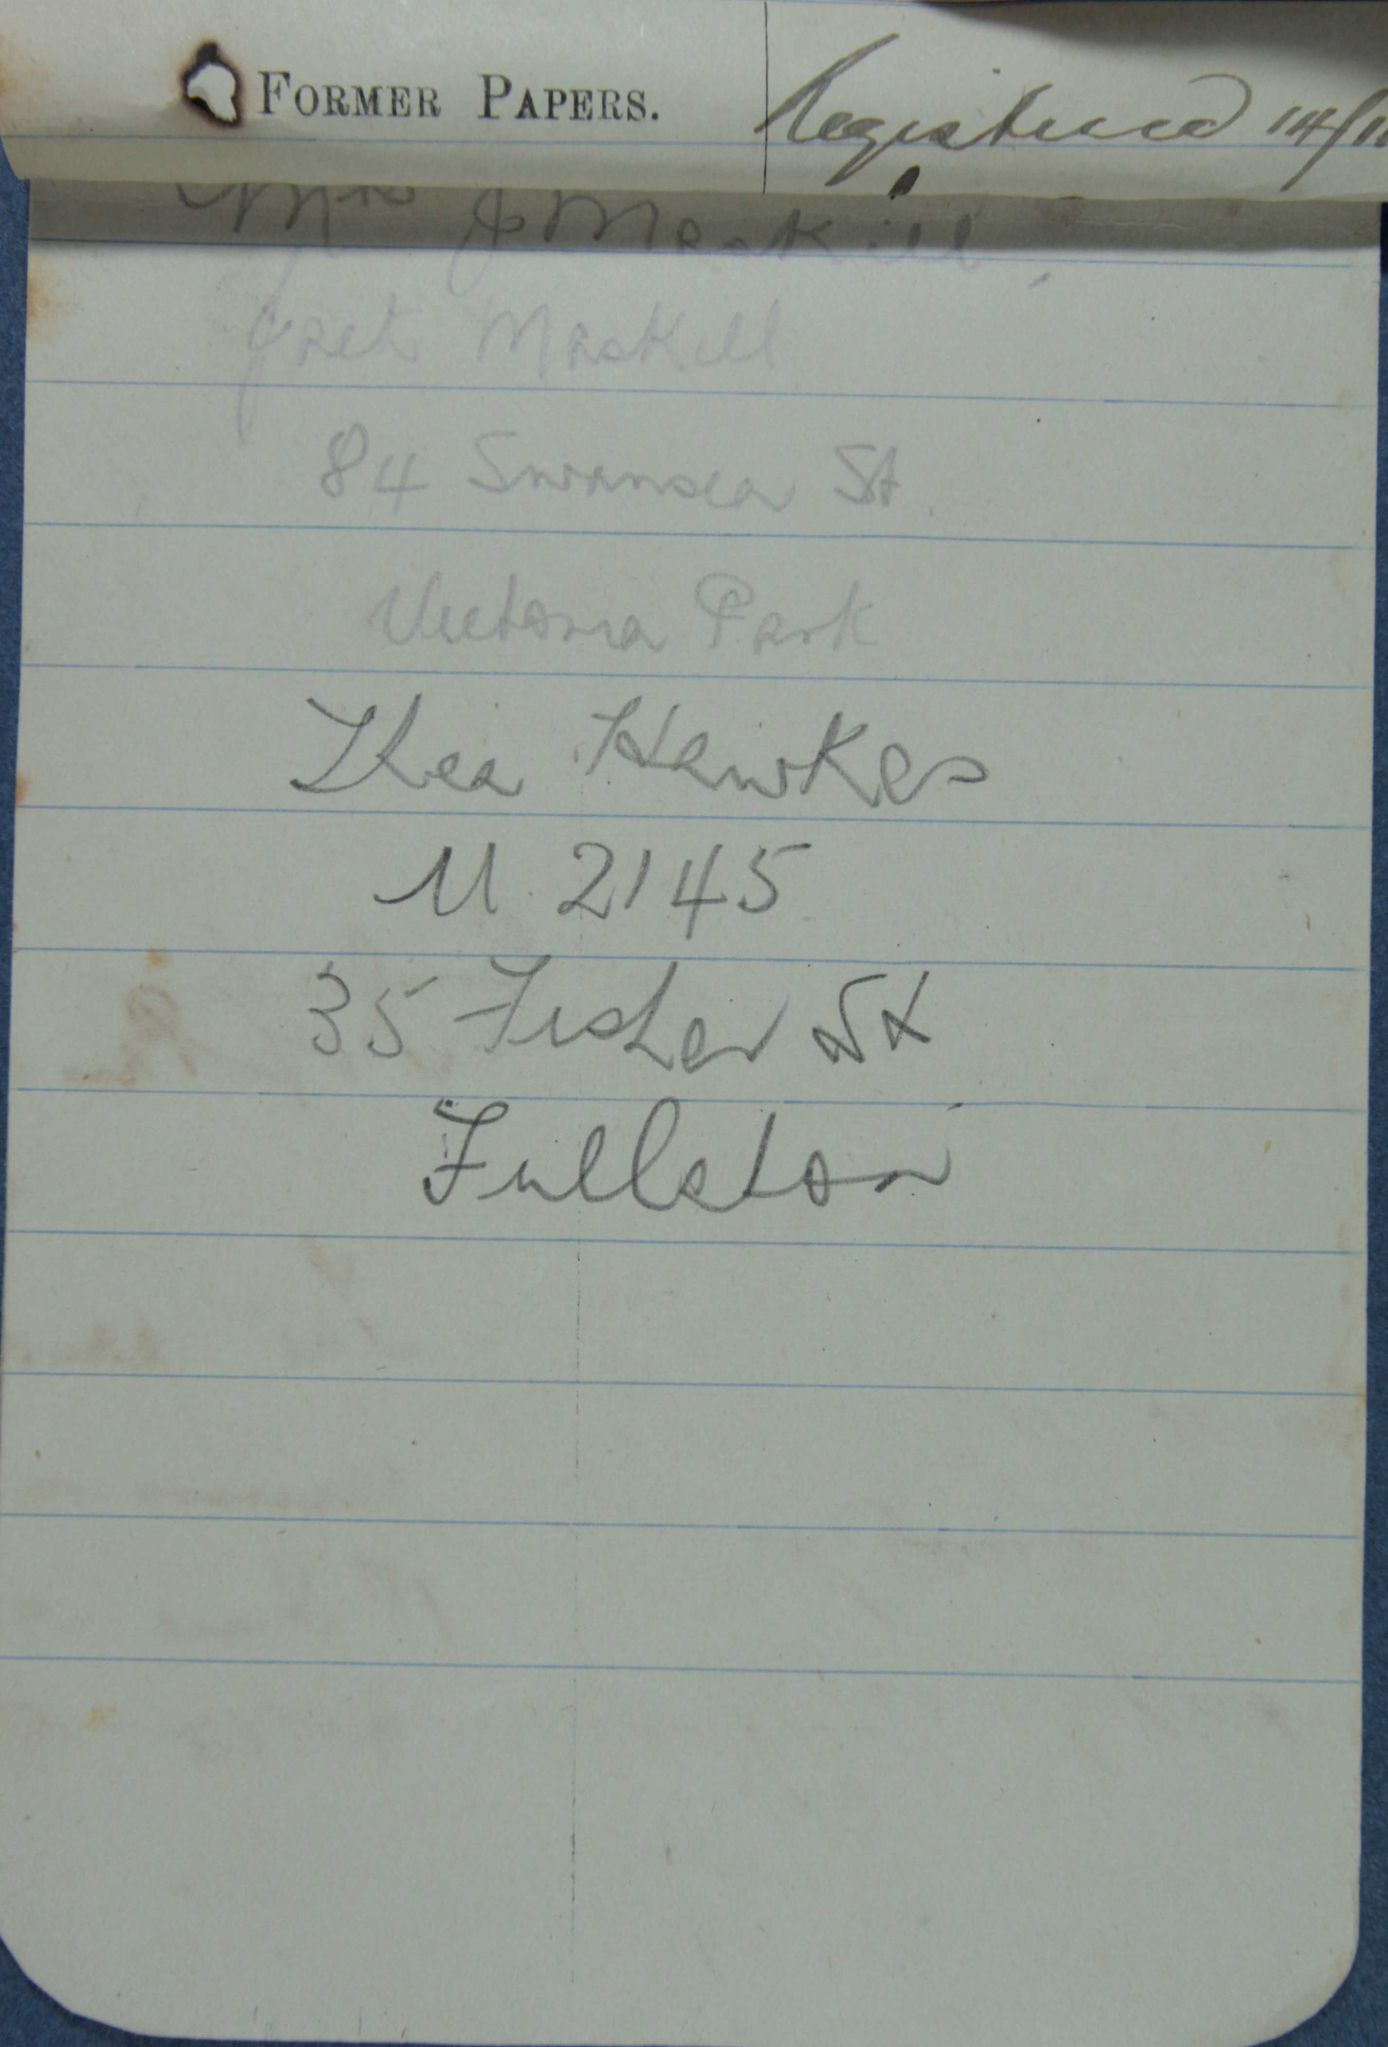 FORMER PAPERS. Registered
Mrs J Maskill,
Jack Maskill
84 Swansea St.
Victoria Park
Thea Hawkes
U 2145
35 Fisher St
Fullaton